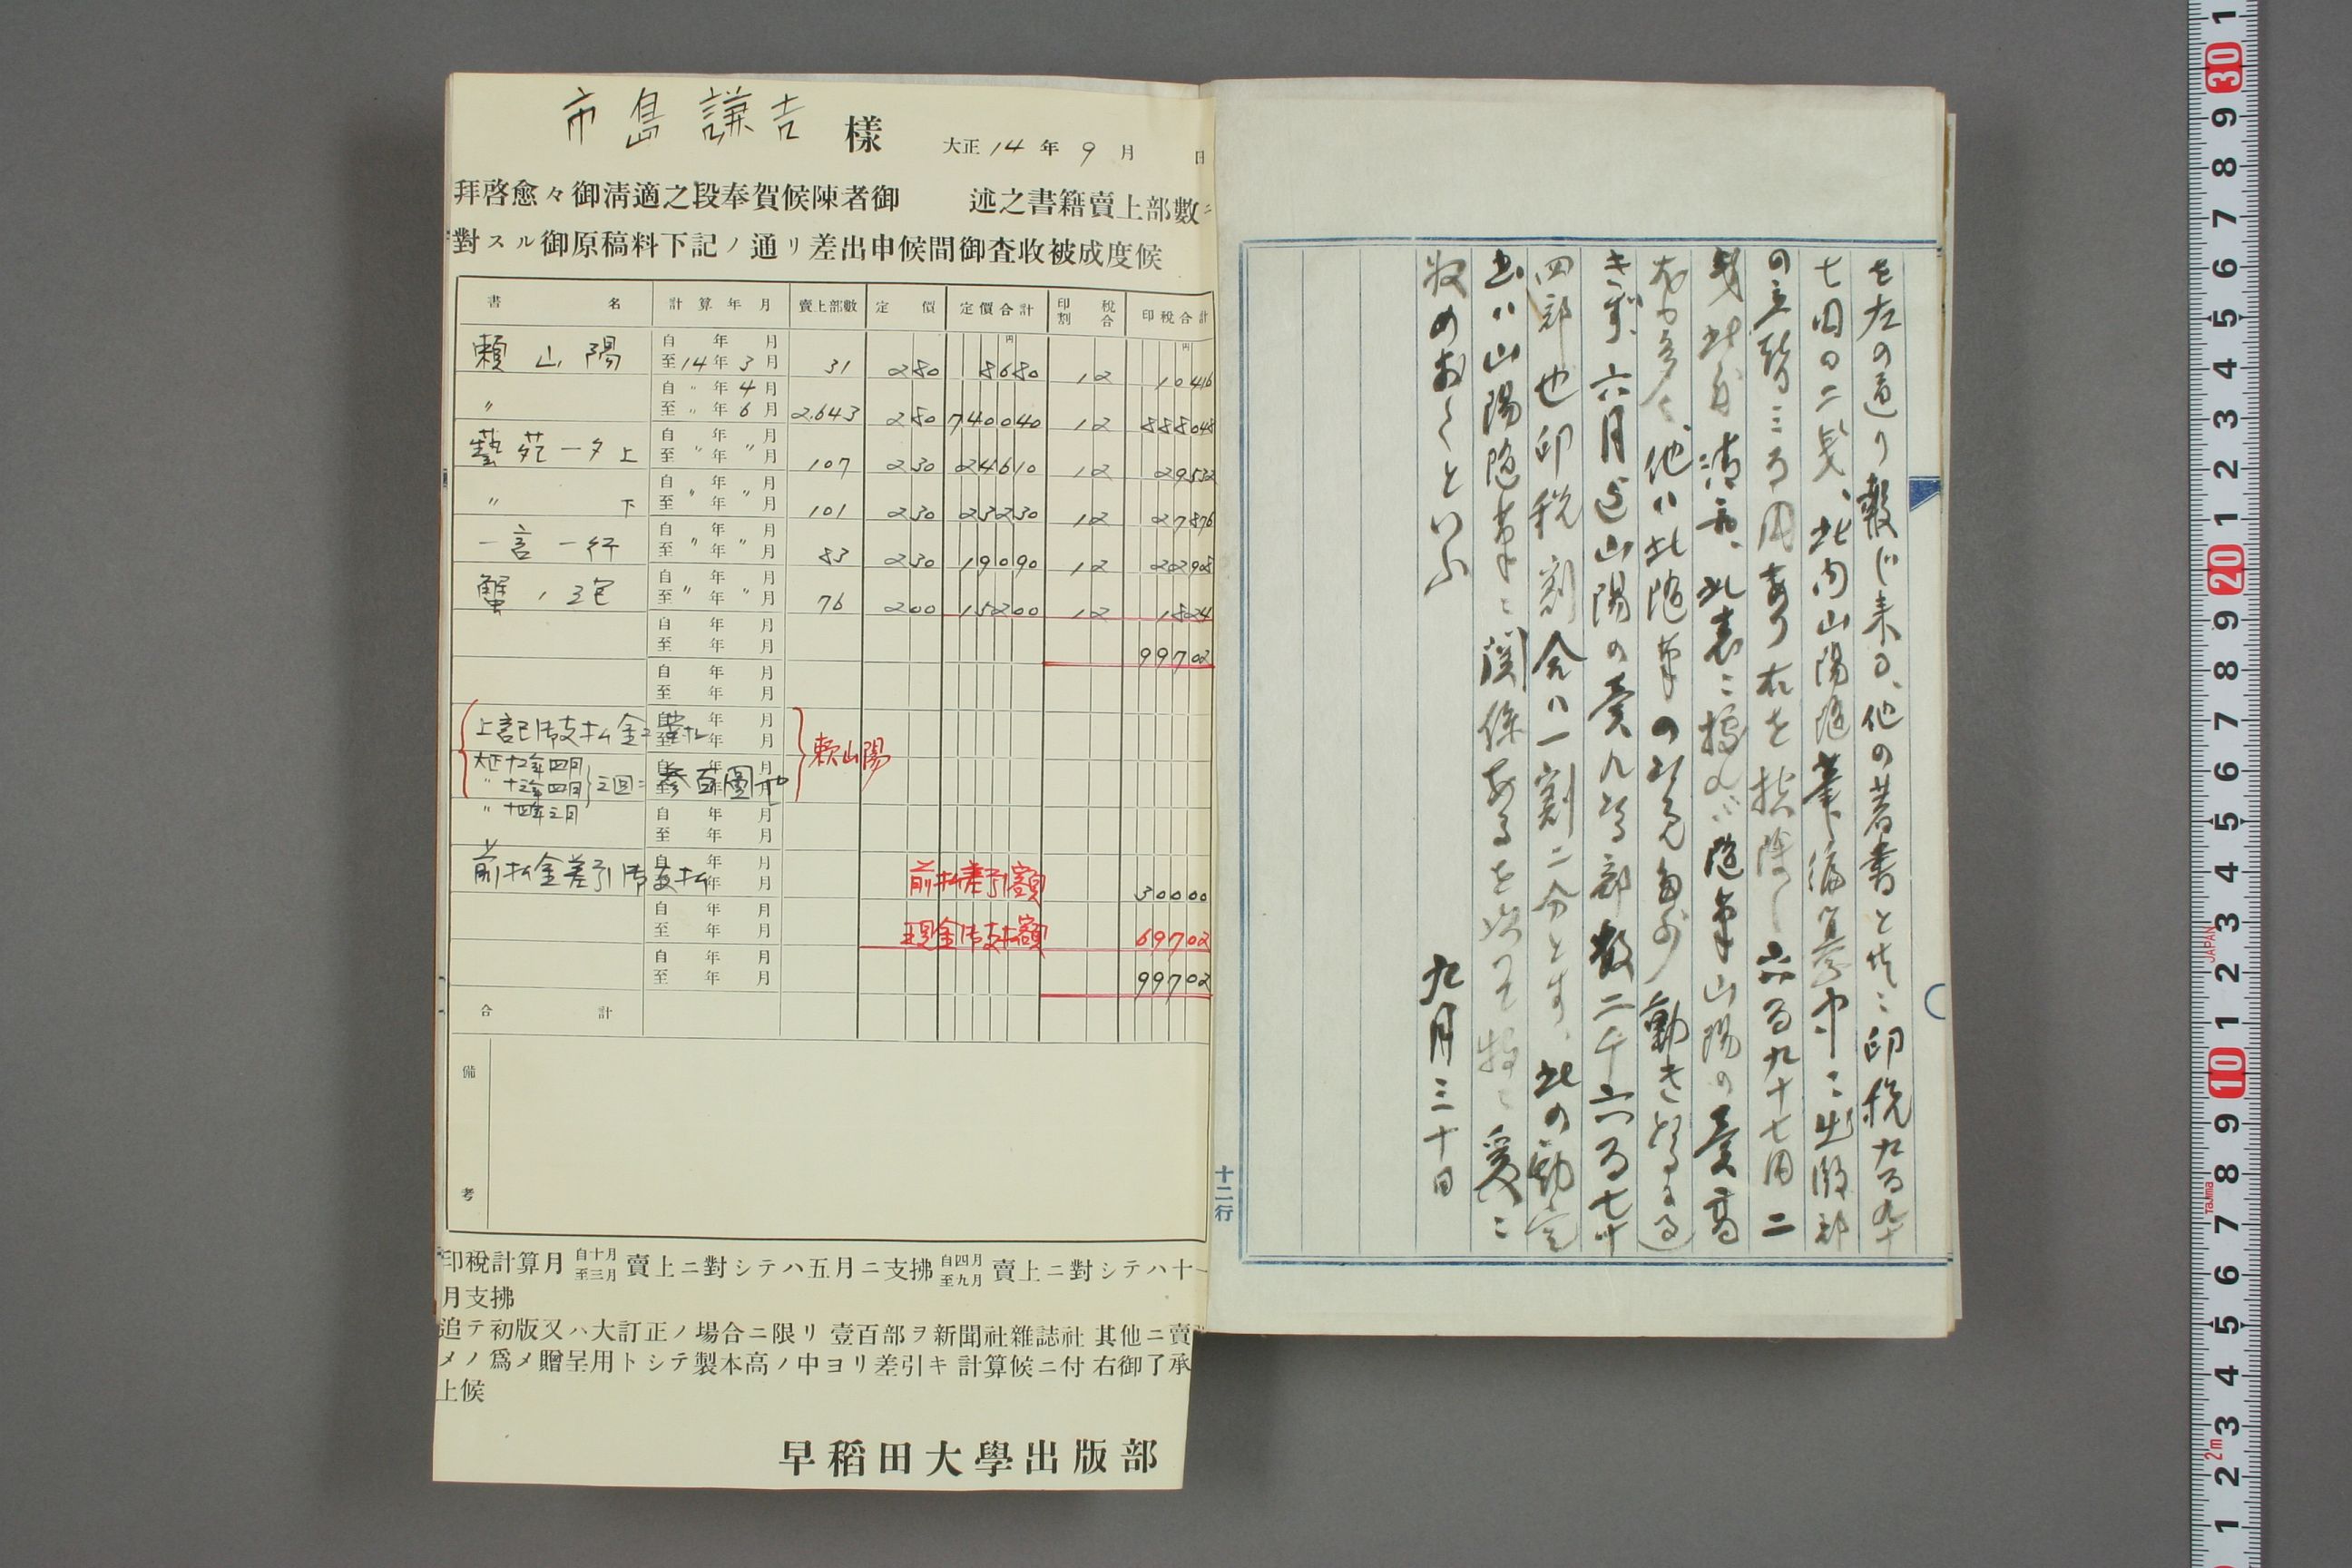 市島謙吉様
大正14年9月 日
拝啓愈々御淸適之段奉賀候陳者御 述之書籍賣上部數ニ
對スル御原稿料下記ノ通リ差出申候間御査收被成度候
書名 計算年月 賣上部數 定價 定價合計 印稅割合 印稅合計
賴山陽 自 年 月 至14年3月 31 280 8680 12 10416
〃 自〃年4月 至〃年6月 2.643 280 740040 12 888048
藝苑一夕上 自 年 月 至〃年〃月 107 230 24610 12 29532
〃 下 自 年 月 至〃年〃月 101 230 23230 12 27876
一言一行 自 年 月 至〃年〃月 83 230 19090 12 22908
蟹ノ泡 自 年 月 至〃年〃月 76 200 15200 12 1824
自 年 月 至 年 月 99702
自 年 月 至 年 月
上記御支払金ニ 賴山陽
大正十二年四月
〃十三年四月 三回ニ参百圓也
〃十四年三月
前払金差引御支払 前払差引額 30000
現金御支払額 69702
99702
合計
備考
印稅計算月 自十月至三月 賣上ニ對シテハ五月ニ支拂 自四月至九月 賣上ニ對シテハ十一
月支拂
追テ初版又ハ大訂正ノ場合ニ限リ壹百部ヲ新聞社雜誌社其他ニ賣
メノ爲メ贈呈用トシテ製本高ノ中ヨリ差引キ計算候ニ付右御了承
上候
早稻田大學出版部
を左の通り報じ来る、他の著書と共ニ印税九百九十
七円〇二銭、此内山陽随筆編纂中ニ出版部
の立替三百円あり右を控除し六百九十七円二
銭此分清算、此表ニ據れバ随筆山陽の賣高
尤も多く、他ハ此随筆の
きず、六月迄山陽の賣れ部数二千六百七十
四部也印税割合ハ一割二分とす、此の勘定
書ハ山陽随筆ニ関係あるを以て特ニ爰ニ
収めおくといふ
九月三十日
十二行